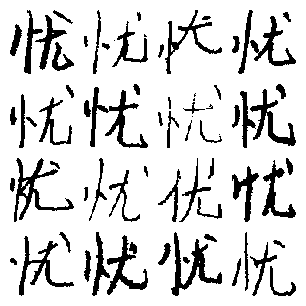 忧忧忧忧
忧忧忧忧
忧忧优忧
忧忧忧忧